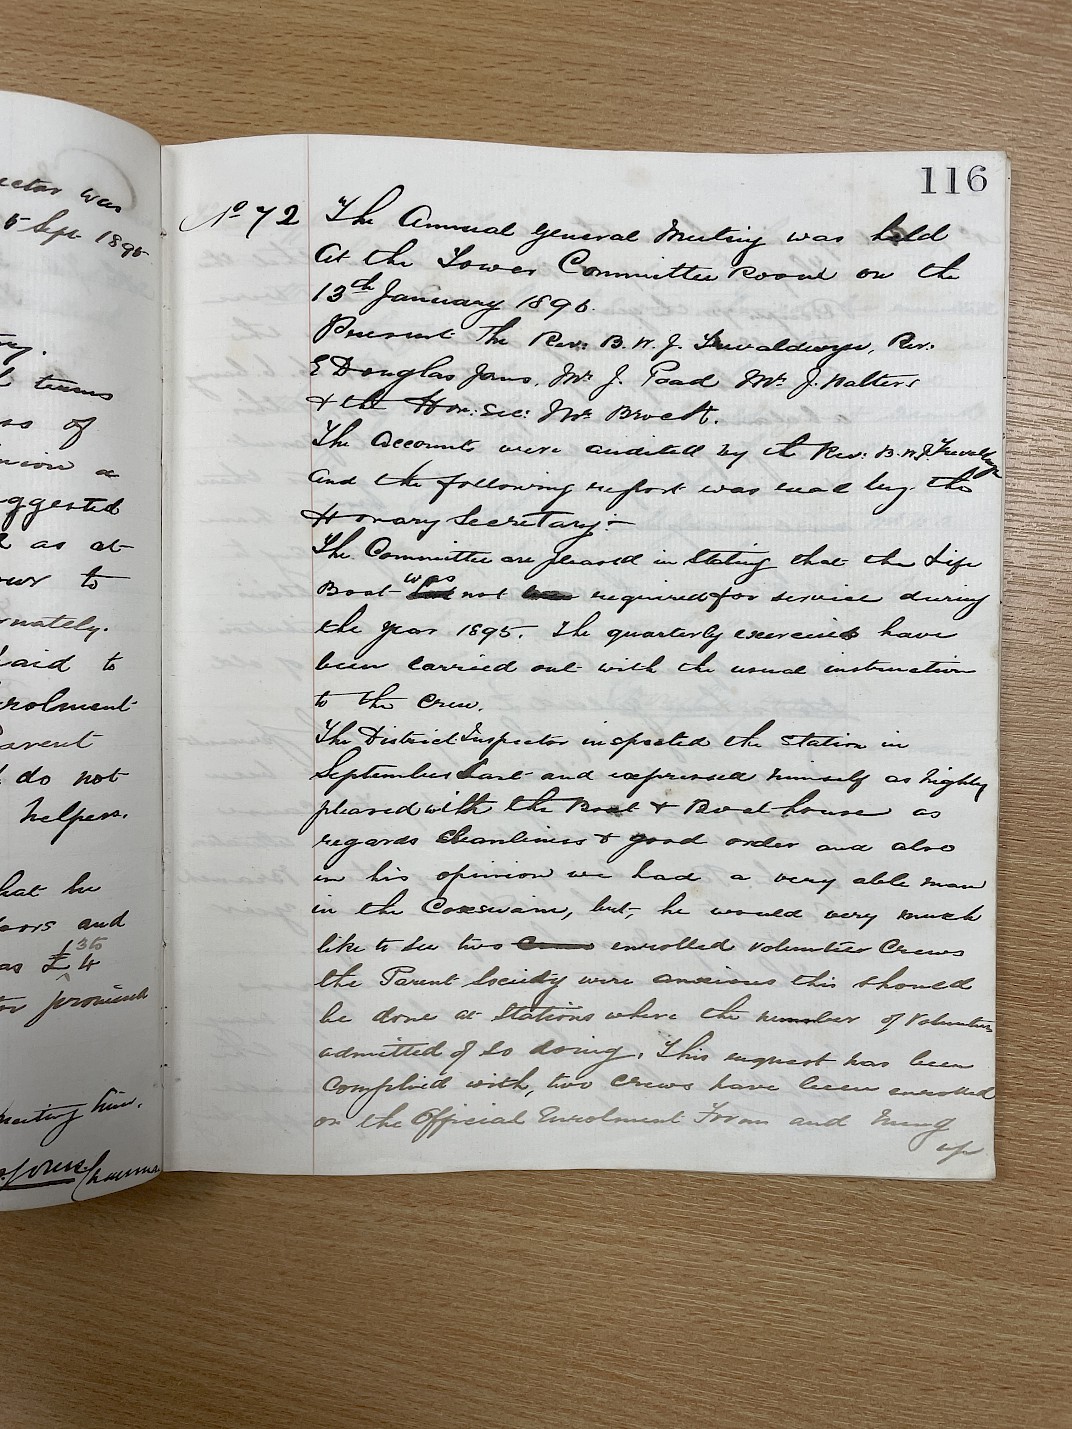 ector was
5 Sept 1895
ry.
l terms
ss of
nion a
ggested
l as at
our to
rnately.
said to
rolment
Parent
d do not
helpers.
that he
doors and
36
as £4
for
meeting him.
116
No 72
The Annual General Meeting was held
At the Tower Committee Room on the
13th January 1896.
Present The Rev: B. W. J. Trevaldwyn, Rev:
E Douglas Jones, Mr J. Poad Mr J. Walters
& the Hon: Sec: Mr Brock.
The Accounts were audited by the Rev: B. W. J. Trevaldwyn
And the following report was read by the
Honary Secretary:-
The Committee are pleased in Stating that the Life
was
Boat not required for service during
the year 1895. The quarterly exercises have
been carried out with the usual instruction
to the Crew.
The District Inspector inspected the Station in
September last and expressed himself as highly
pleased with the Boat & Boat house as
regards Cleanliness & good order and also
in his opinion we had a very able man
in the Coxswain, but, he would very much
like to see two enrolled Volunteer Crews
the Parent Society were anxious this should
be done at Stations where the number of Volunteers
admitted of so doing. This request has been
Complied with, two Crews have been enrolled
on the Official Enrolment Form and hung
up